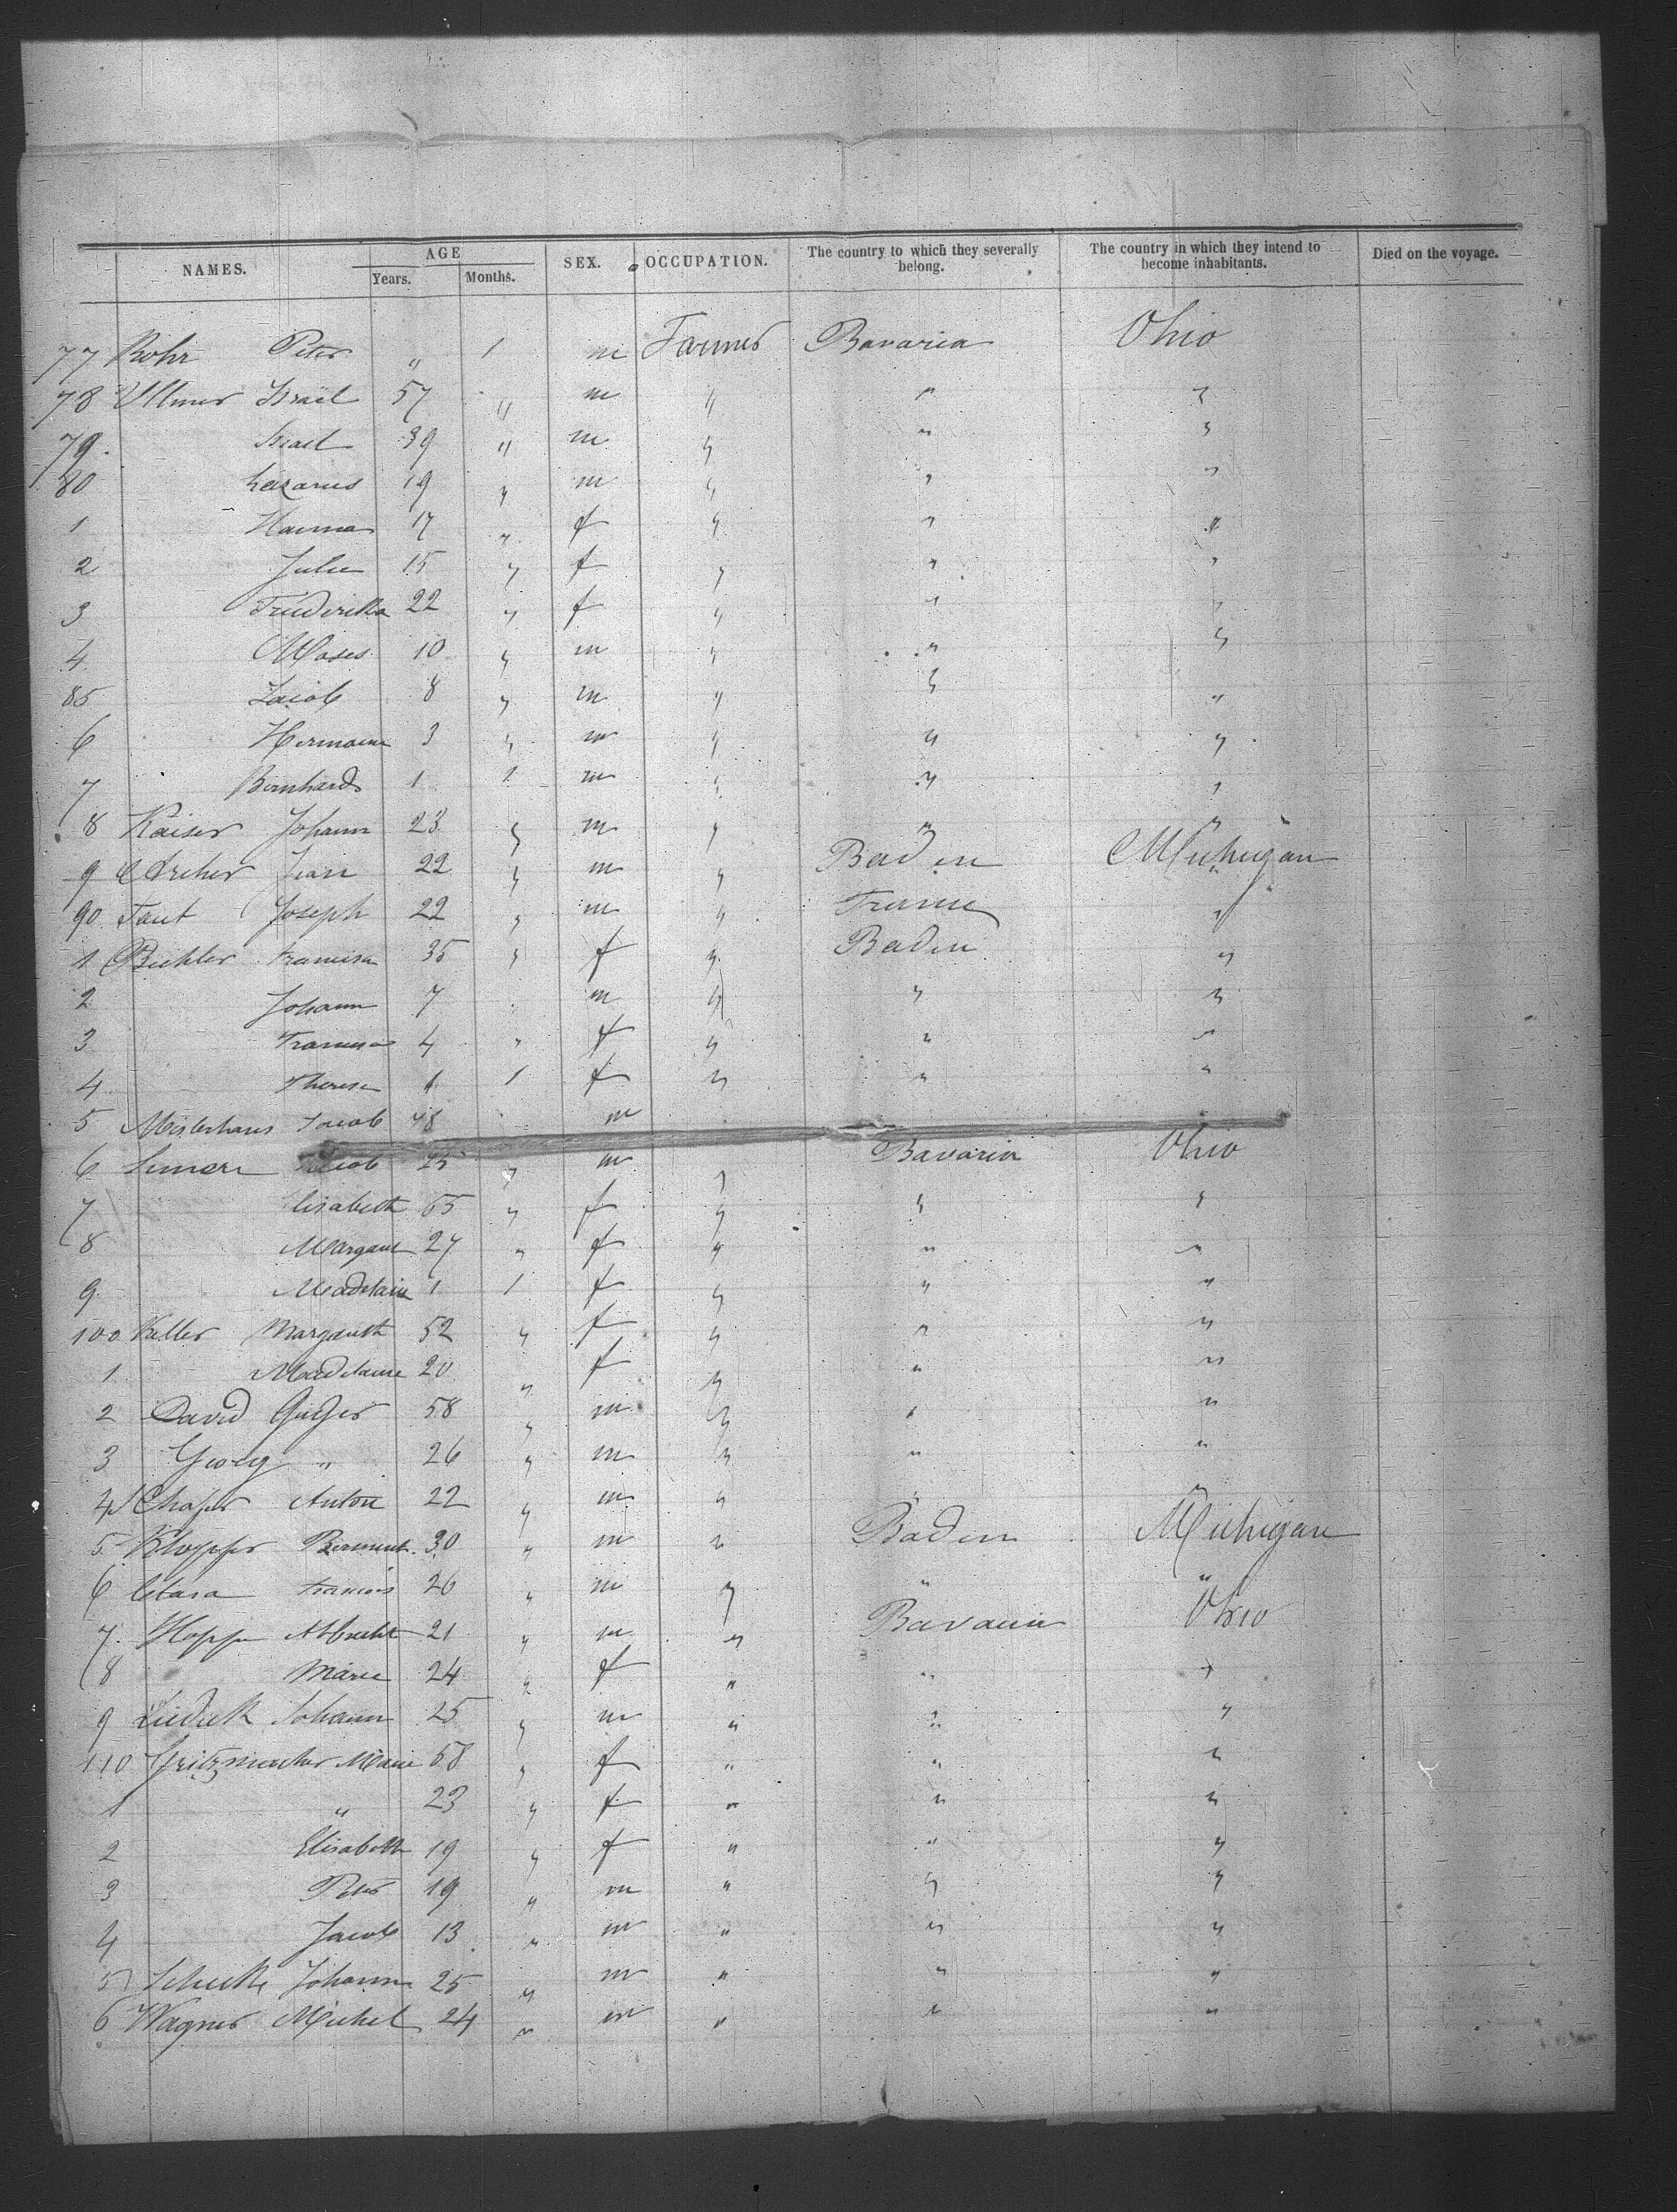 NAMES. AGE Years. Months. SEX. OCCUPATION. The country to which they severally belong. The country in which they intend to become inhabitants. Died on the voyage.
77 Rohr Peter " 1 m Farmer Bavaria Ohio
78 Ullmer Israel 57 " m " " "
79 Israel 39 " m " " "
80 Lazarus 19 " m " " "
1 Hanna 17 " f " " "
2 Julie 15 " f " " "
3 Friederika 22 " f " " "
4 Moses 10 " m " " "
85 Jacob 8 " m " " "
6 Hermann 3 " m " " "
7 Bernhard 1 1 m " " "
8 Kaiser Johann 23 " m " " "
9 Archer Jean 22 " m " Baden Michigan
90 Faut Joseph 22 " m " France "
1 Buhler Francisca 35 " f " Baden "
2 Johann 7 " m " " "
3 Francisca 4 " f " " "
4 Therese 1 f " " "
5 Jacob 48 m
6 Simon Jacob 25 " m " Bavaria Ohio
7 Elisabeth 65 " f " " "
8 Margaret 27 " f " " "
9 Madelaine 1 1 f " " "
100 Keller Margareth 52 " f " " "
1 Madelaine 20 " f " " "
2 David Geiger 58 " m " " "
3 Georg " 26 " m " " "
4 Schafer Anton 22 " m " " "
5 Klopfer 30 " m " Baden Michigan
6 Clara Francois 26 " m " " "
7 Hoppe Albrecht 21 " m " Bavaria Ohio
8 Marie 24 " f " " "
9 Johann 25 " m " " "
110 Gritzmacher Marie 58 " f " " "
1 " 23 " f " " "
2 Elisabeth 19 " f " " "
3 Peter 19 " m " " "
4 Jacob 13 " m " " "
5 Johann 25 " m " " "
6 Wagner Michel 24 " m " " "